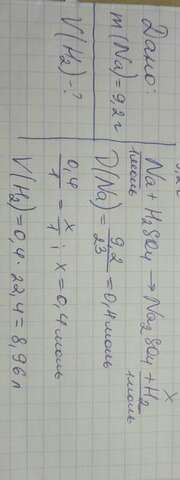 Дано:
m(Na)=9,2 г
V(H₂)-?
9,2 г x
Na + H₂SO₄ → Na₂SO₄ + H₂
1 моль 1 моль
ν(Na) = 9,2/23 = 0,4 моль
0,4/1 = x/1 ; x = 0,4 моль
V(H₂) = 0,4 · 22,4 = 8,96 л